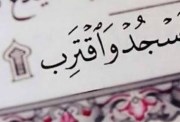 سْجُدْ وَٱقْتَرِب